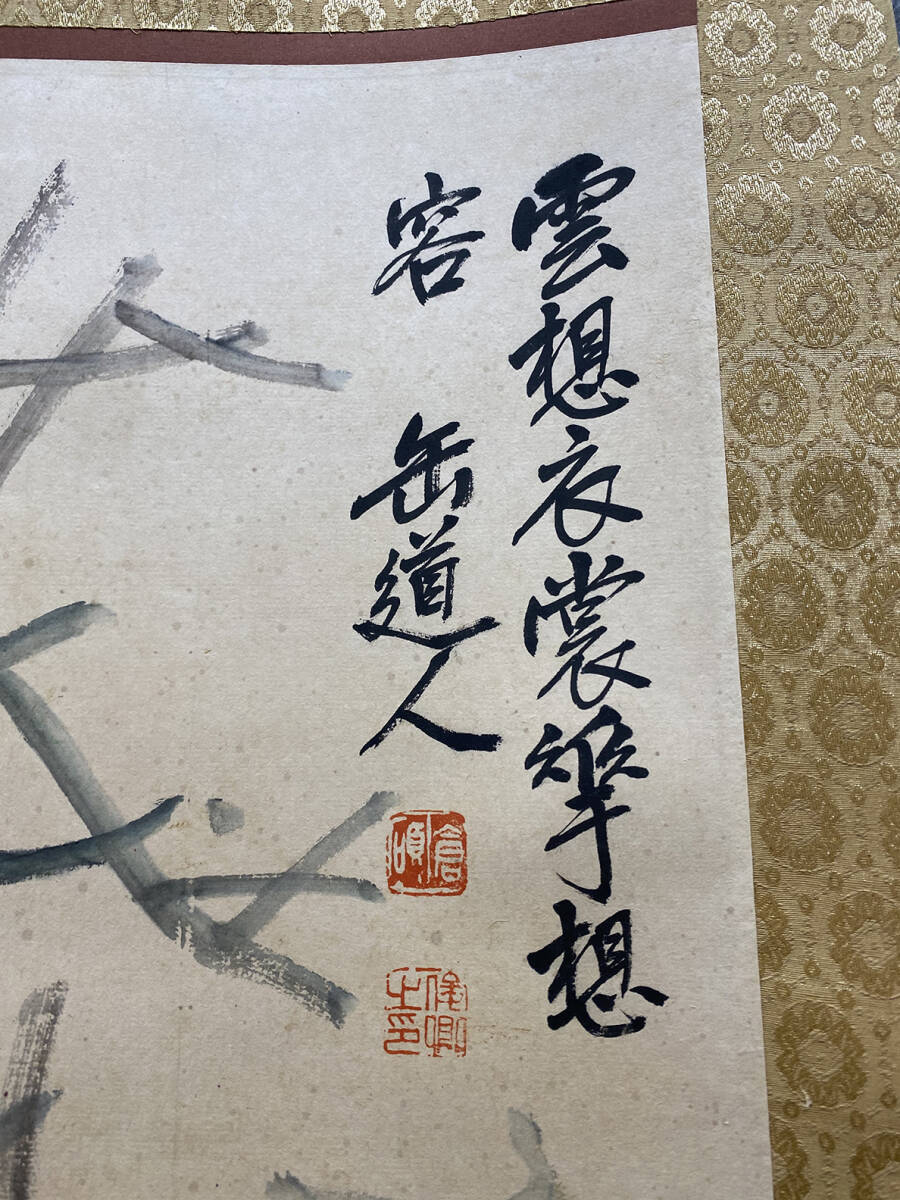 雲想衣裳華想
容 缶道人
倉碩
俊卿之印